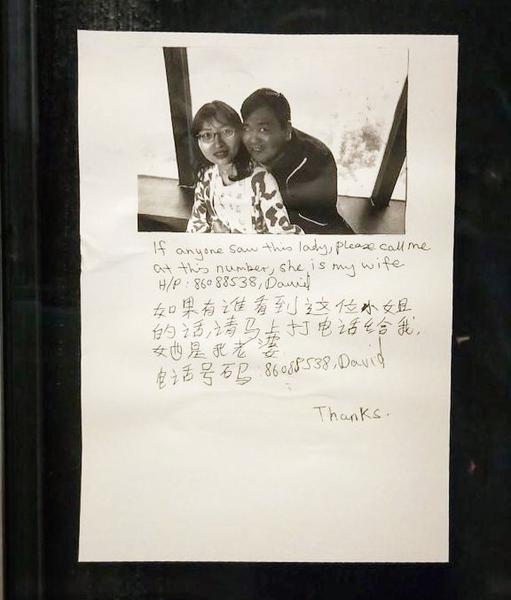 If anyone saw this lady, please call me
at this number, she is my wife
H/P: 86088538, David
如果有谁看到这位小姐
的话,请马上打电话给我,
她是我老婆
电话号码: 86088538, David
Thanks.